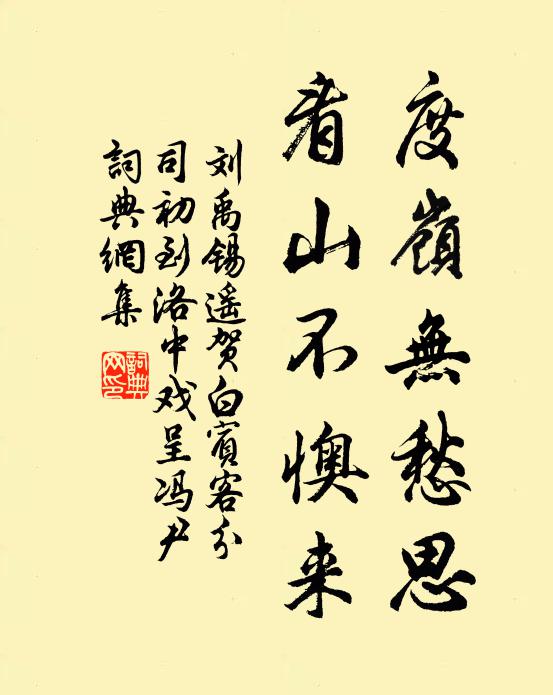 度嶺無愁思
看山不懊来
刘禹锡遥贺白賓客分
司初到洛中戏呈冯尹
詞典網集
詞典網印